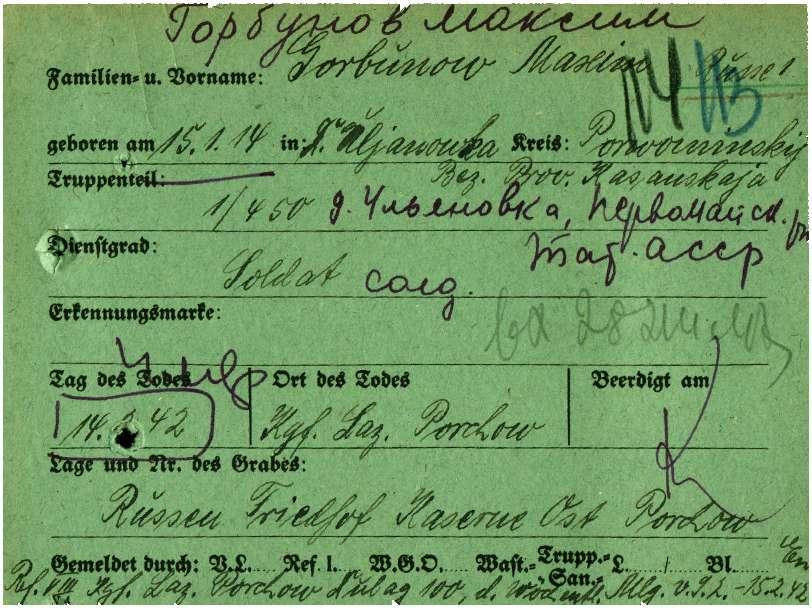 Горбунов Максим
Gorbŭnow Maxim Rŭsse 1
Familien- u. Vorname:
geboren am 15.1.14 in: D. Uljanowka Kreis:
Truppenteil: Bez. Prov. Kasanskaja
1/450 д. Ульяновка, Первомайск.
Тат. АССР
Dienstgrad:
Soldat солд.
Erkennungsmarke:
Tag des Todes Ort des Todes Beerdigt am
умер
14. 2. 42 Kgf. Laz. Porchow
Lage und Nr. des Grabes:
Rŭssen Friedhof Kaserne Ost Porchow
Gemeldet durch: V.L. Ref I. W.G.O. Wast.- Trupp.- San.- L Bl
Ref. VIII Kgf. Laz. Porchow Dulag 100, d. Mlg. v. - 15.2.42